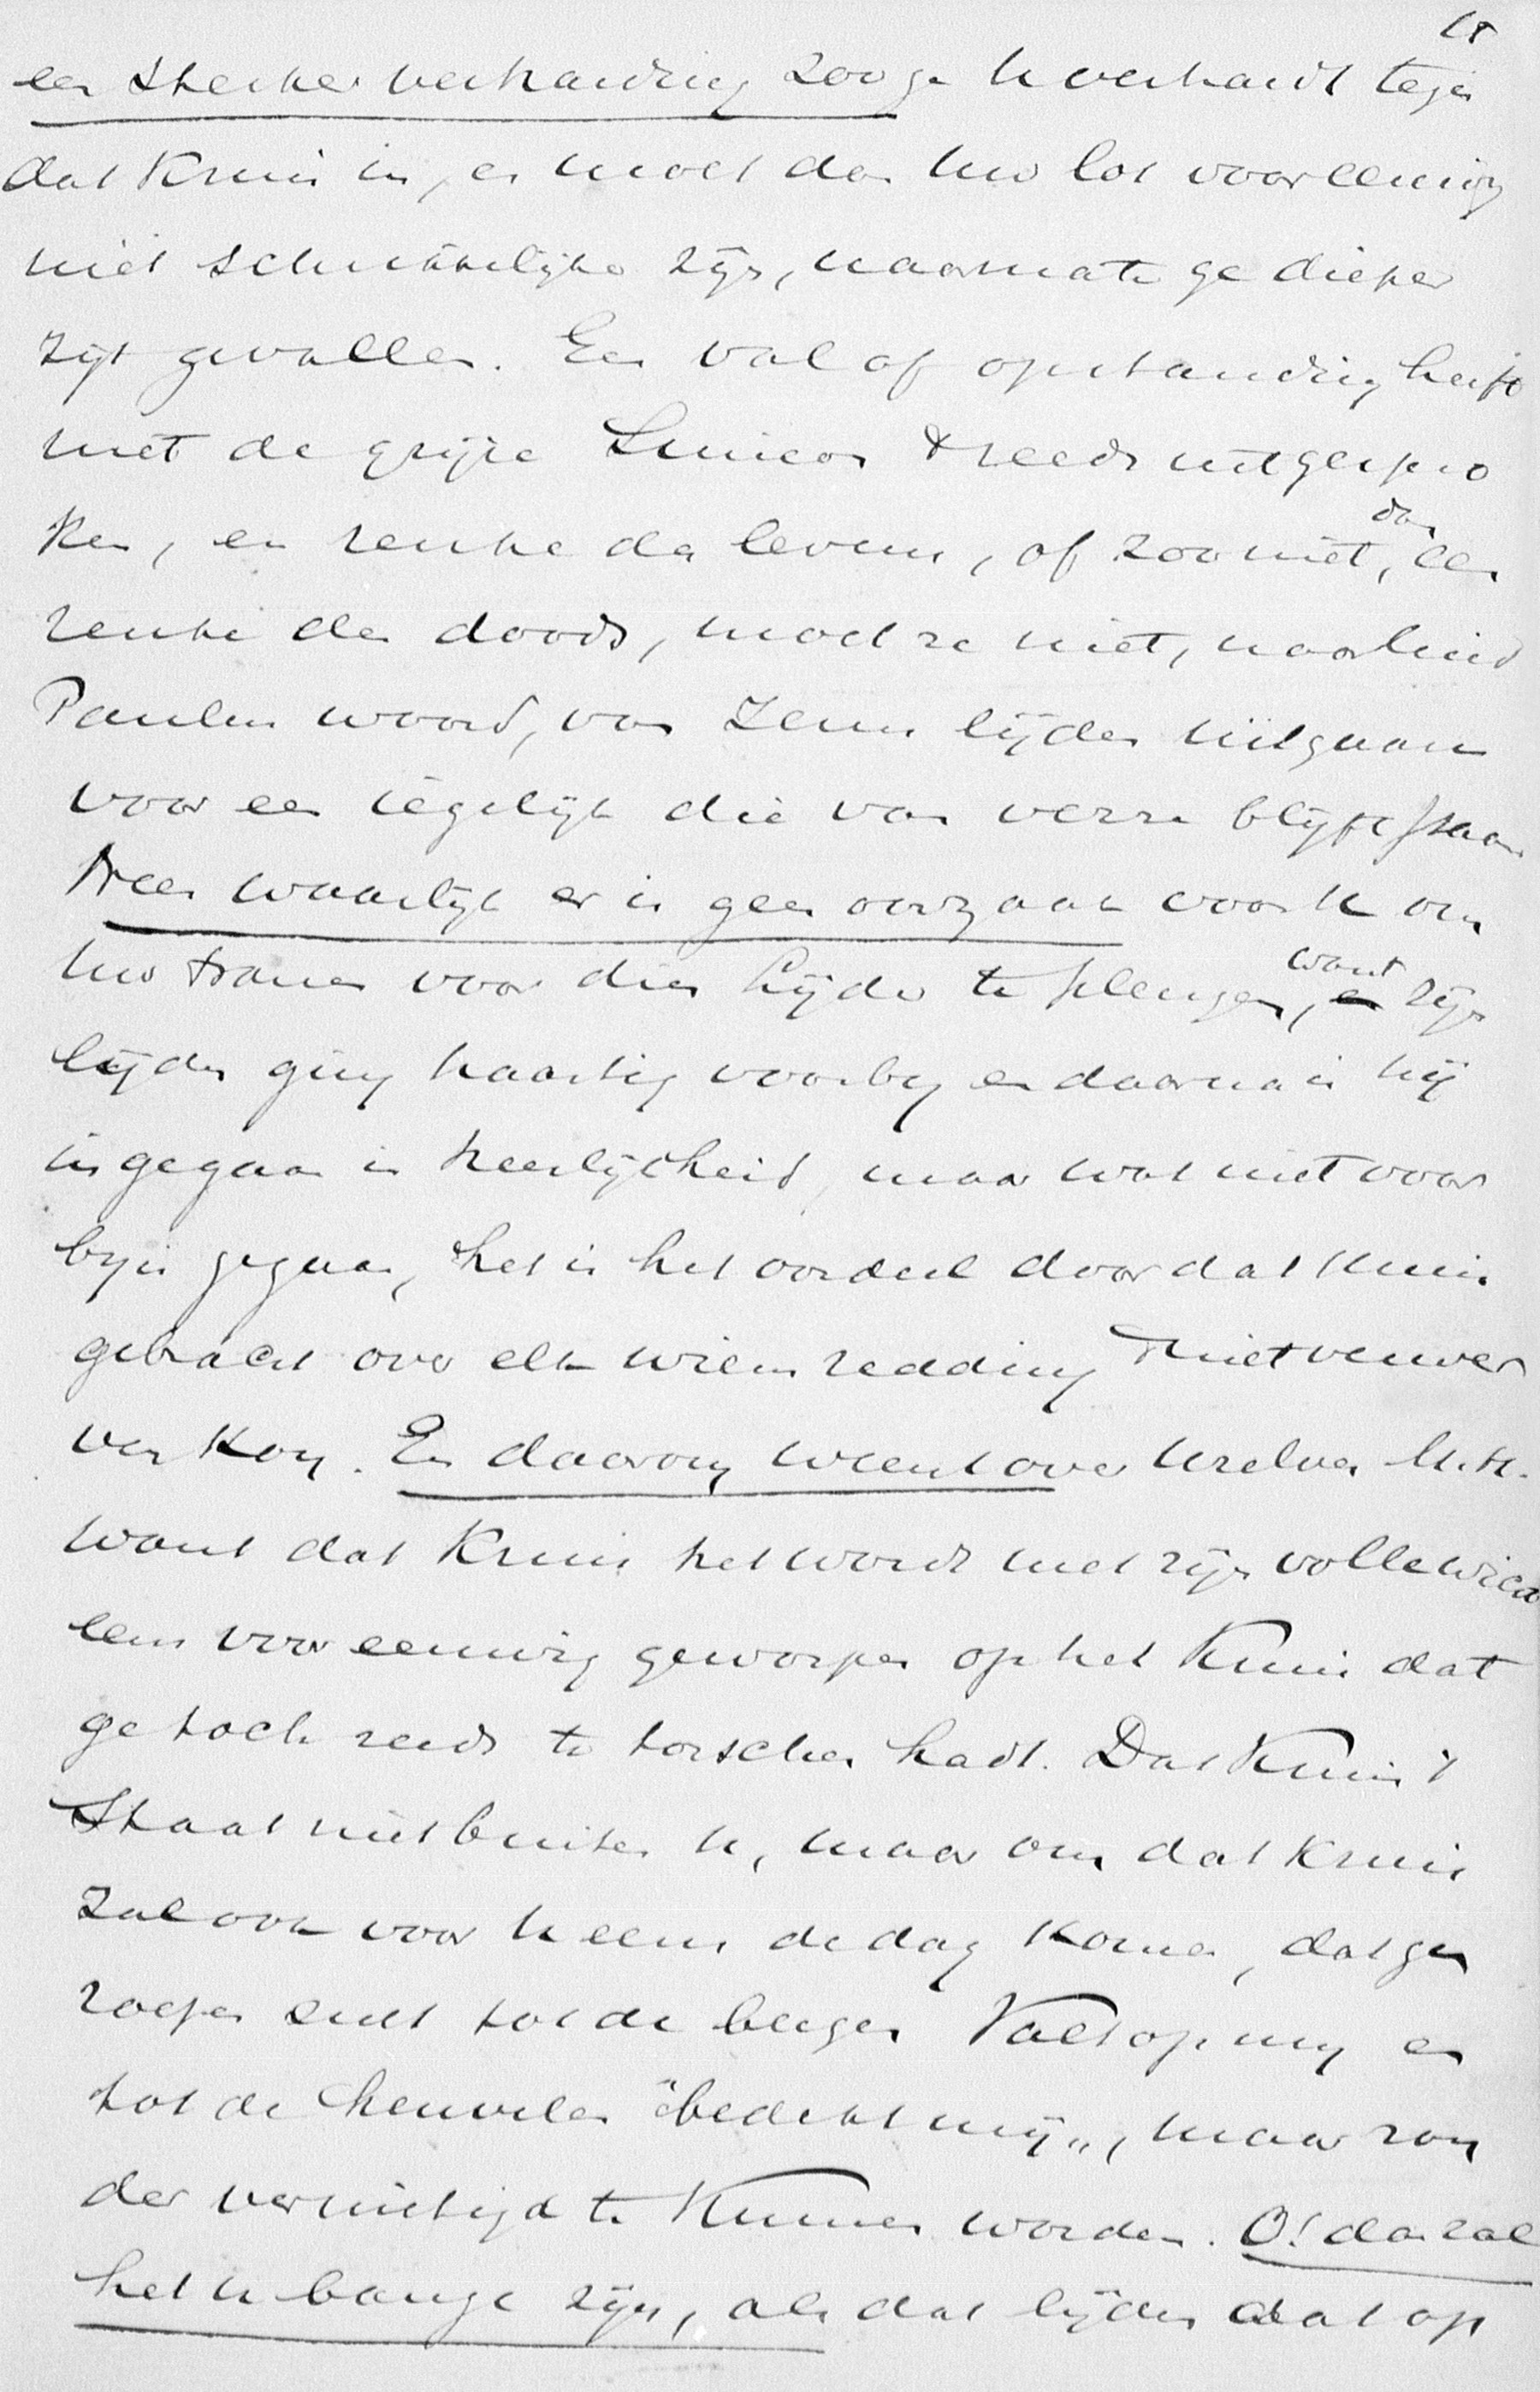 een sterker verharding zoo ge U verhardt tegen
dat Kruis in, en moet dan Uw lot voor eeuwig
niet schrikkelijker zijn, naarmate ge dieper
zijt gevallen. Een val of opstanding heeft
met de grijze Simeon reeds uitgespro
ken, en reuke des levens, of zoo niet, dan een
reuke des doods, moet ze niet, naar luid
Paulus woord, van Jezus lijden uitgaan
voor een iegelijk die van verre blijft staan
Neen waarlijk er is geen oorzaak voor U om
Uw tranen voor dien Lijder te plengen, want zijn
lijden ging haastig voorby en daarna is hij
ingegaan in heerlijkheid, maar wat niet voor
by is gegaan, het is het oordeel door dat Kruis
gebracht over elk wiens redding 't niet verwer
ven kon. En daarom weent over Uzelven M.H.
want dat Kruis het wordt met zijn volle wicht
eens voor eeuwig geworpen op het Kruis dat
ge toch reeds te torschen hadt. Dat Kruis 't
staat niet buiten U, maar om dat Kruis
zal ook voor U eens de dag komen, dat ge
roepen zult tot de bergen Valt op my en
tot de heuvelen "bedekt mij", maar zon
der vernietigd te kunnen worden. O! dan zal
het U bange zijn, als dat lijden dat op